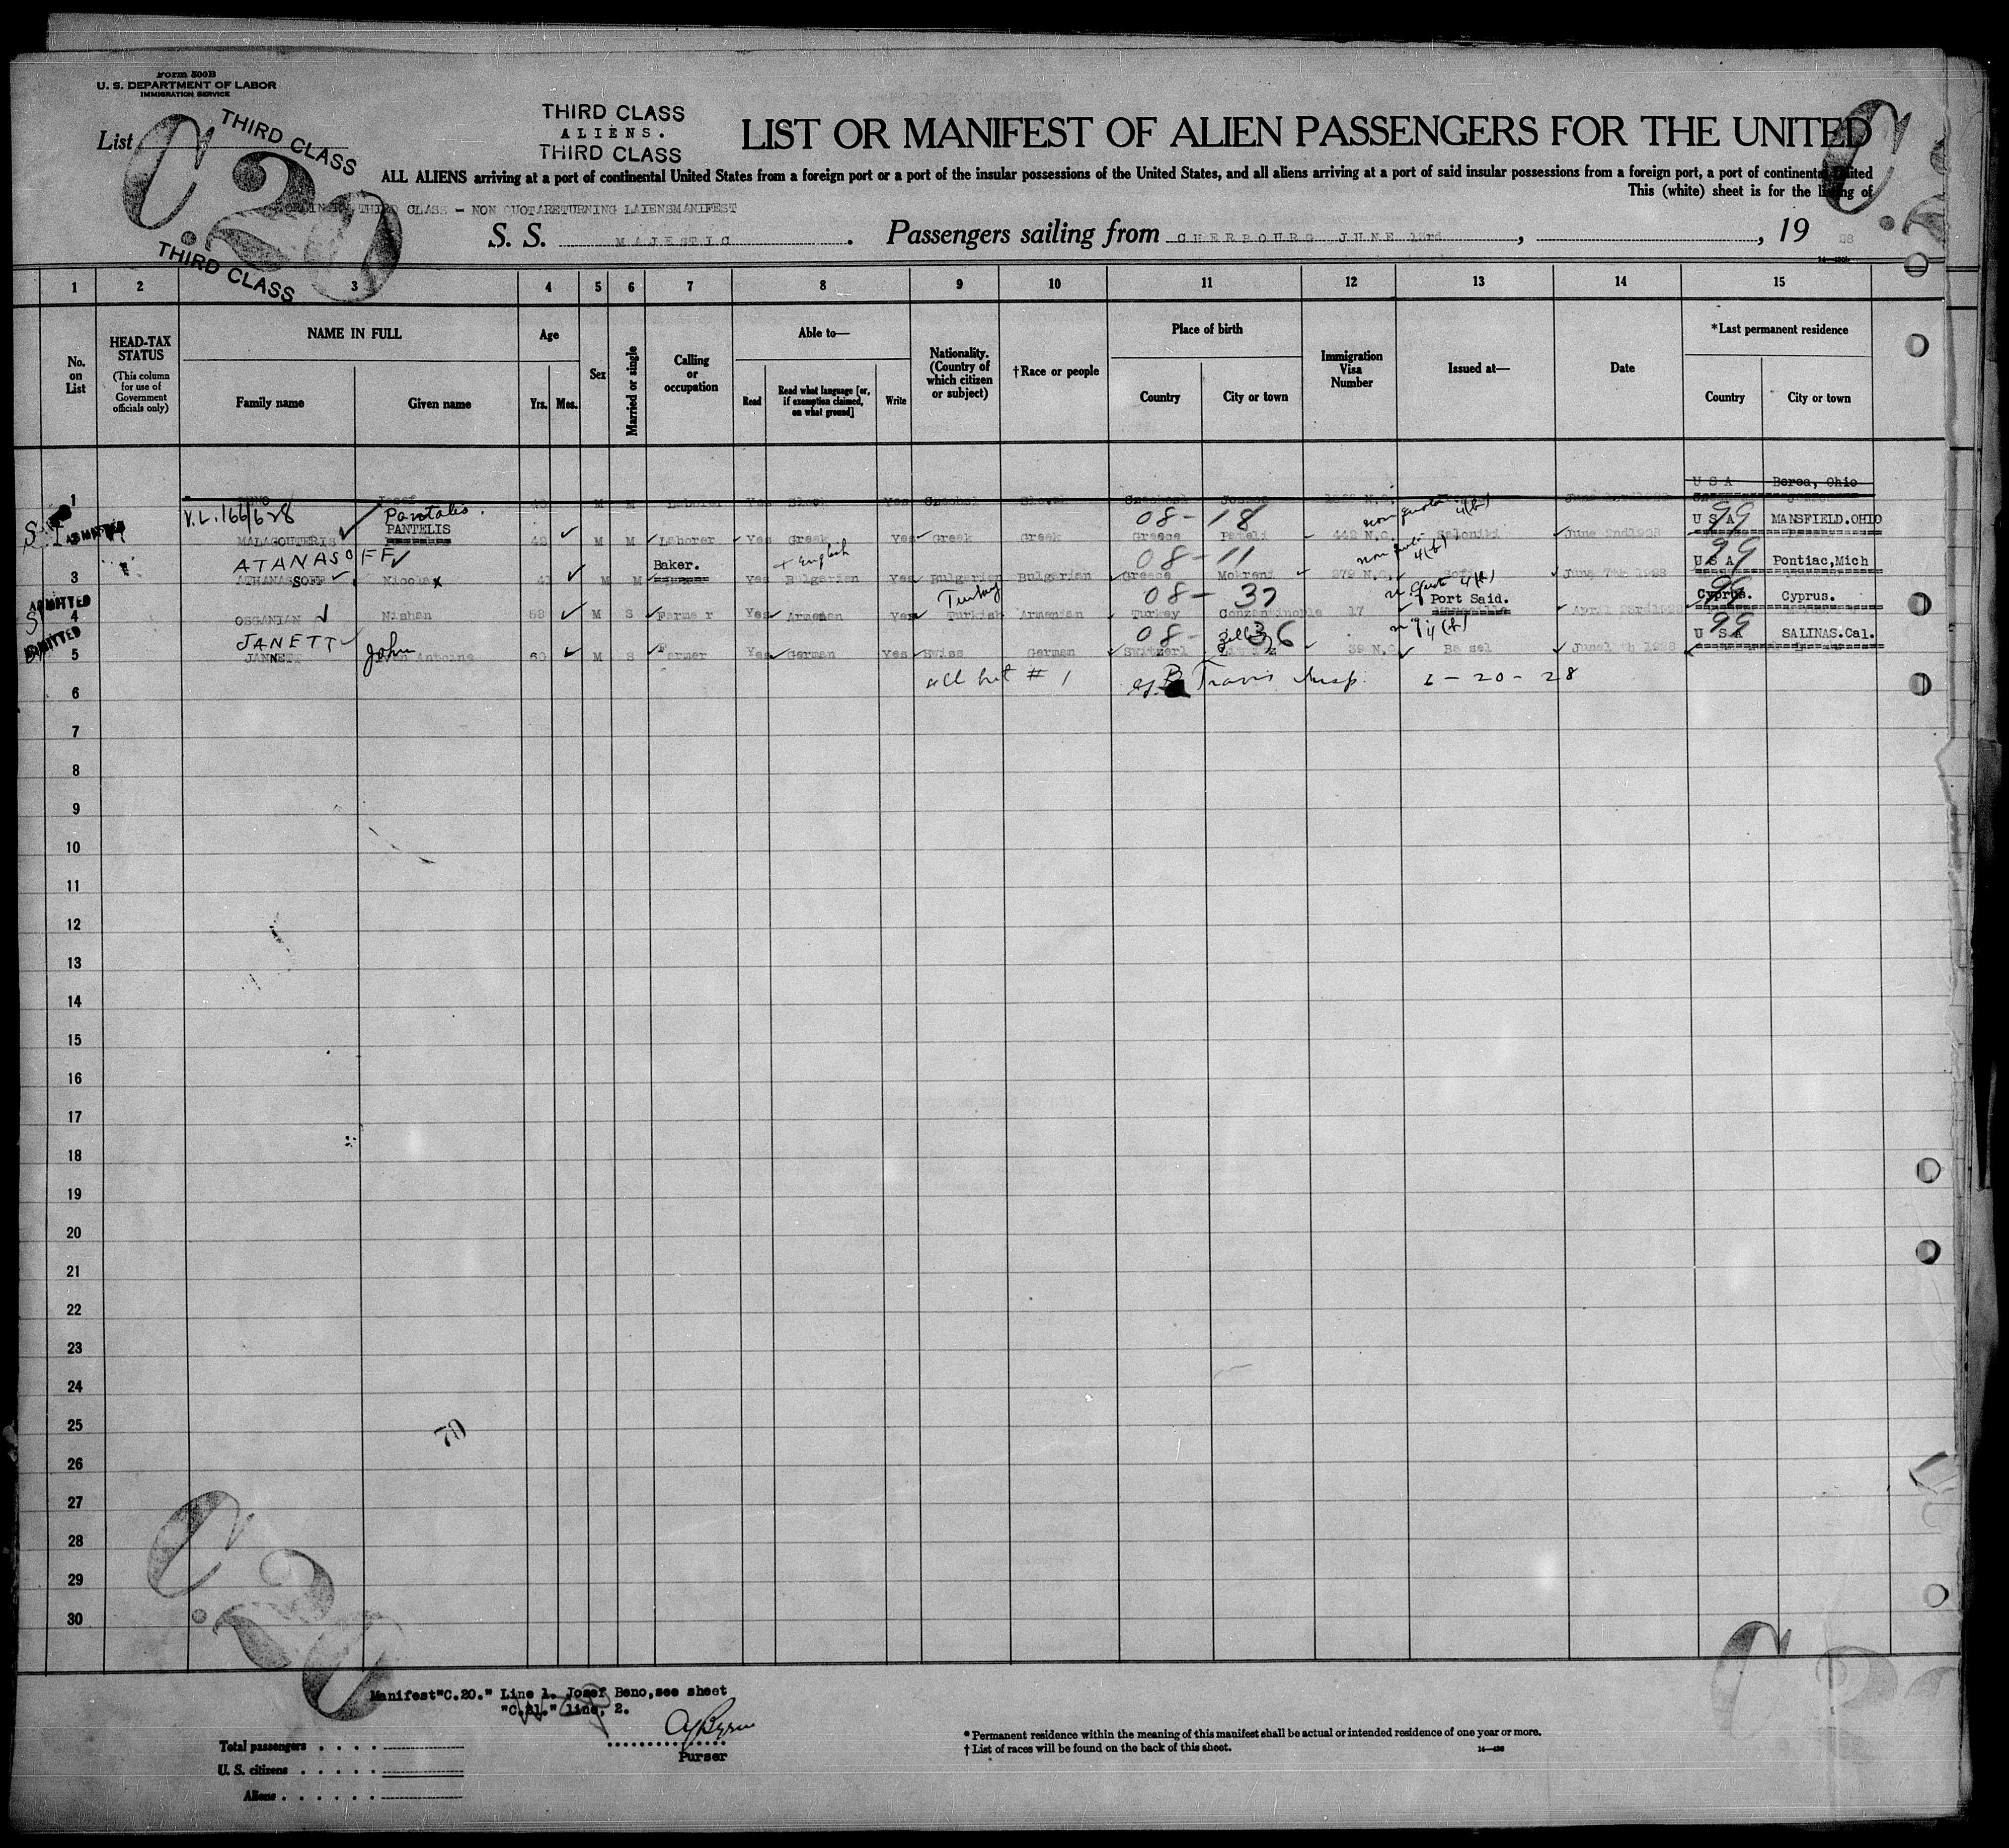 Form 500B
U. S. DEPARTMENT OF LABOR
IMMIGRATION SERVICE
List
C.20
THIRD CLASS
THIRD CLASS
THIRD CLASS
ALIENS.
THIRD CLASS
LIST OR MANIFEST OF ALIEN PASSENGERS FOR THE UNITED
ALL ALIENS arriving at a port of continental United States from a foreign port or a port of the insular possessions of the United States, and all aliens arriving at a port of said insular possessions from a foreign port, a port of continental United
This (white) sheet is for the listing of
THIRD CLASS - NON QUOTARETURNING LAIENSMANIFEST
S. S. MAJESTIC. Passengers sailing from CHERBOURG JUNE 13rd, , 19 28
1 2 3 4 5 6 7 8 9 10 11 12 13 14 15
No. on List
HEAD-TAX STATUS
(This column for use of Government officials only)
NAME IN FULL
Family name
Given name
Age
Yrs. Mos.
Sex
Married or single
Calling or occupation
Able to—
Read
Read what language [or, if exemption claimed, on what ground]
Write
Nationality. (Country of which citizen or subject)
†Race or people
Place of birth
Country
City or town
Immigration Visa Number
Issued at—
Date
*Last permanent residence
Country
City or town
U S A Berea, Ohio
1 Josef M M Laborer Yes Slovak Yes Slovak
V.L.166/628 Pantalis. 08-18 non quota 4(b)
PANTELIS U S A 99 MANSFIELD.OHIO
ADMITTED MALAGOUTERIS 42 M M Laborer Yes Greek Yes Greek Greek Greece 442 N.Q. Saloniki June 2nd1928
ATANASOFF + English 08-11 non quota 4(b)
Baker. U S A 99 Pontiac,Mich
3 ATHANASSOFF Nicolax 41 M M Yes Bulgarian Yes Bulgarian Bulgarian Greece Mokreni 279 N.Q. Sofia June 7th 1928
ADMITTED Turkey 08-37 4(b)
Port Said. Cyprus. 99 Cyprus.
4 OSSANIAN Nishan 58 M S Farmer Yes Armenan Yes Turkish Armenian Turkey Conzantinople 17 April 23rd1928
ADMITTED JANETT John 08-36 4(b)
U S A 99 SALINAS.Cal.
5 JANNETT Antoine 60 M S Farmer Yes German Yes Swiss German Switzerl 39 N.Q. Basel June11th 1928
6 all but # 1 Travis Insp. 6-20-28
7
8
9
10
11
12
13
14
15
16
17
18
19
20
21
22
23
24
25
26
27
28
29
30
70
C.20
Manifest"C.20." Line 1. Josef Beno,see sheet
"C.21." line, 2.
Purser
Total passengers
U. S. citizens
Aliens
* Permanent residence within the meaning of this manifest shall be actual or intended residence of one year or more.
† List of races will be found on the back of this sheet.